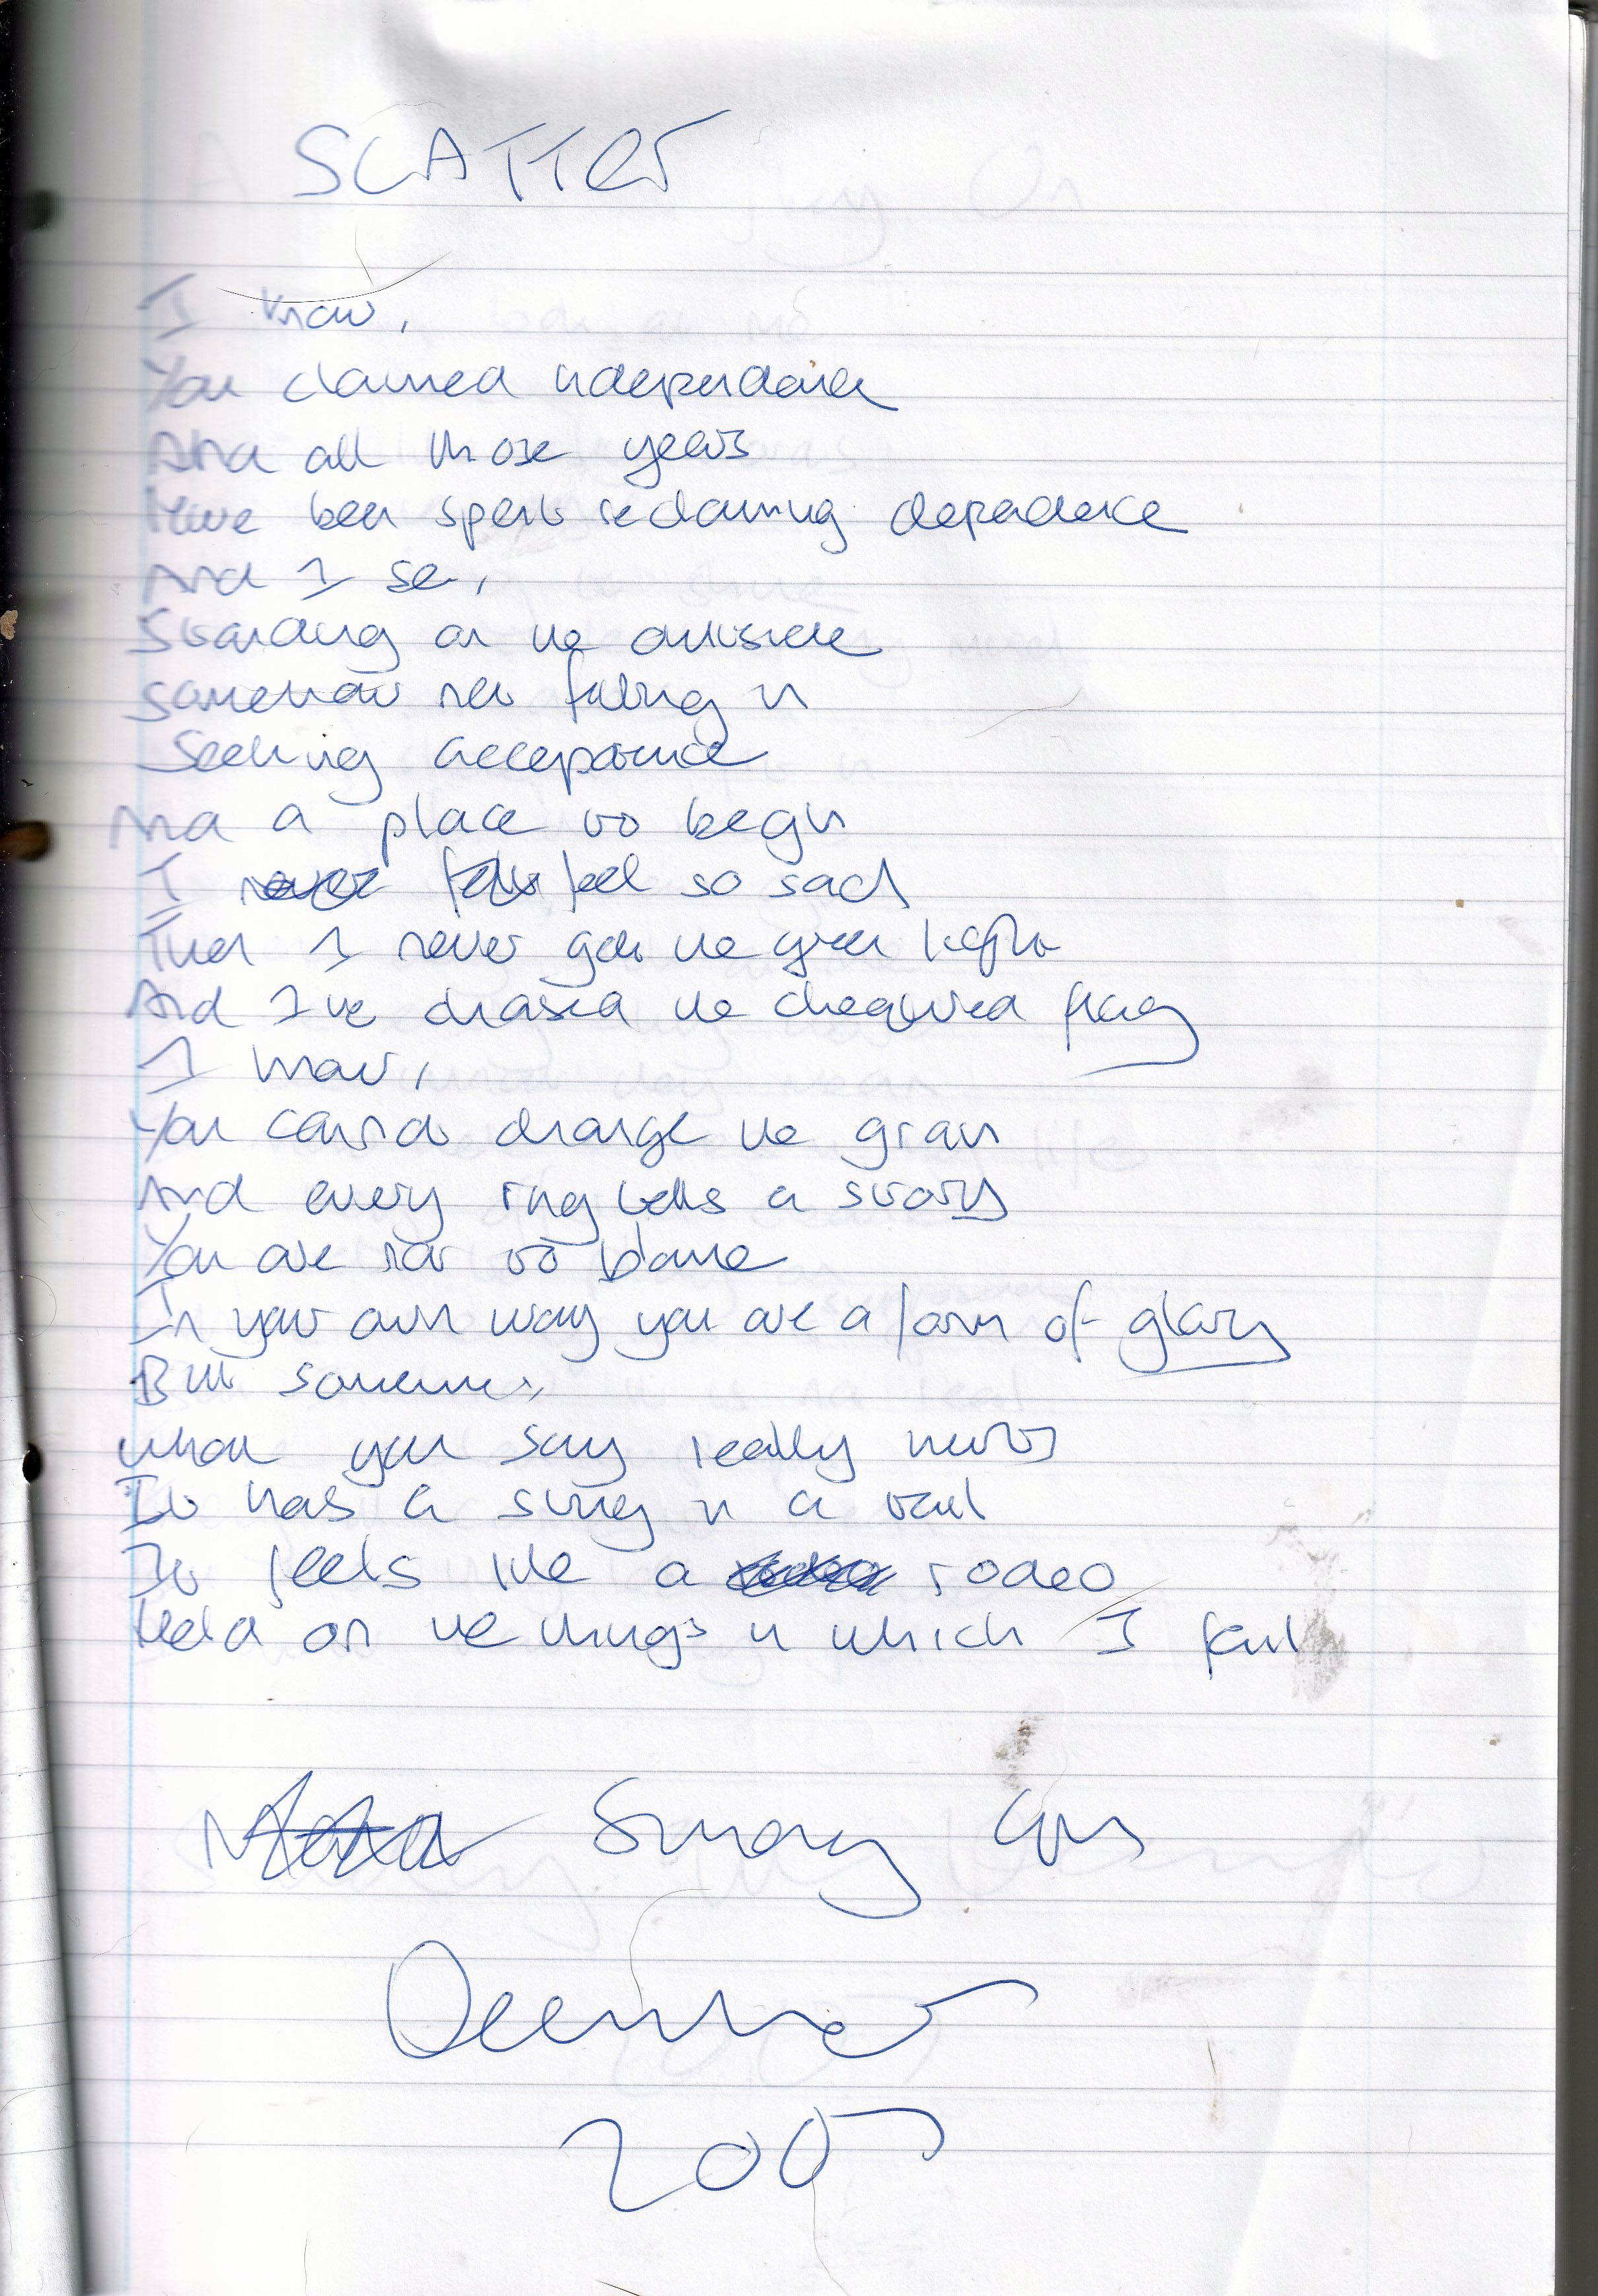 SCATTER
I know,
You claimed independence
And all those years
Have been spent reclaiming dependence
And I see,
Standing on the outside
Somehow not falling in
Seeking acceptance
And a place to begin
I never felt feel so sad
That I never got the green light
And I've chased the chequered flag
I know,
You cannot change the grain
And every ring tells a story
You are not to blame
In your own way you are a form of glory
But sometimes,
What you say really hurts
It has a sting in a tail
It feels like a rodeo
Held on the things in which I fail
Sunday
December
2005